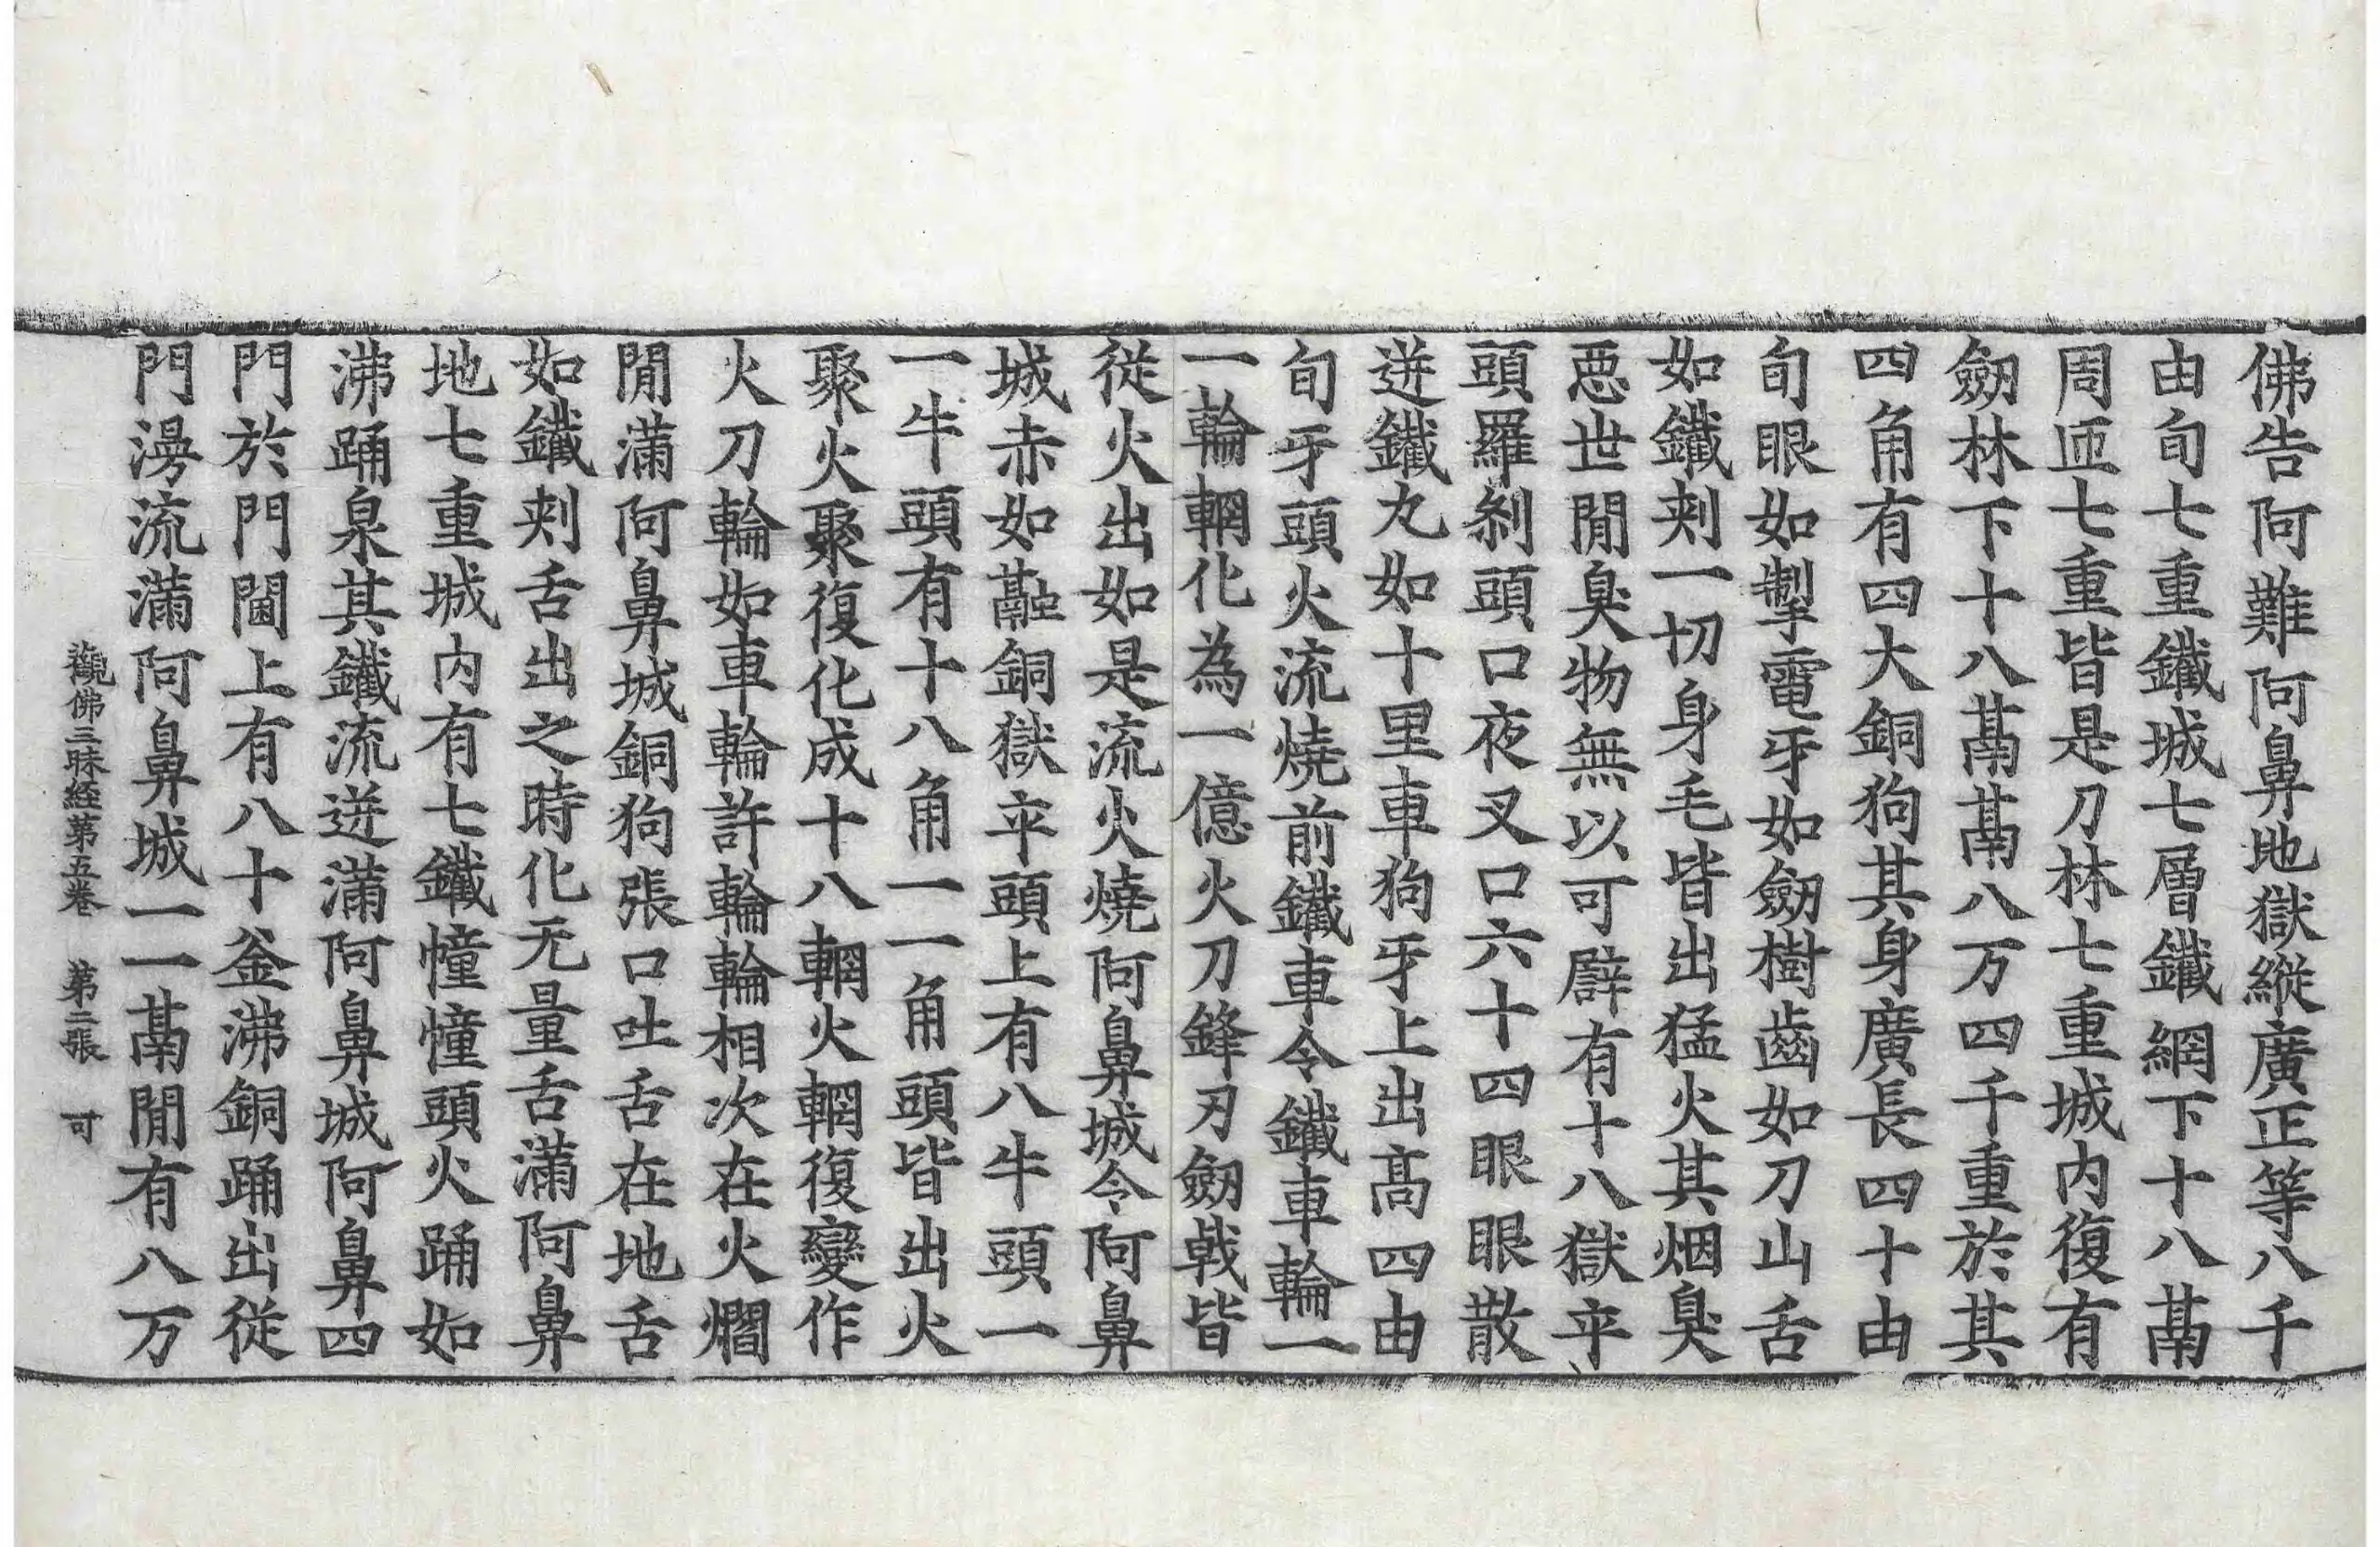 佛告阿難阿鼻地獄縱廣正等八千
由旬七重鐵城七層鐵網下十八鬲
周匝七重皆是刀林七重城内復有
劒林下十八鬲鬲八万四千重於其
四角有四大銅狗其身廣長四十由
旬眼如掣電牙如劒樹齒如刀山舌
如鐵刾一切身毛皆出猛火其烟臭
惡世間臭物無以可譬有十八獄卒
頭羅刹頭口夜叉口六十四眼眼散
迸鐵丸如十里車狗牙上出高四由
旬牙頭火流燒前鐵車令鐵車輪一
一輪輞化為一億火刀鋒刃劒戟皆
從火出如是流火燒阿鼻城令阿鼻
城赤如融銅獄卒頭上有八牛頭一
一牛頭有十八角一一角頭皆出火
聚火聚復化成十八輞火輞復變作
火刀輪如車輪許輪輪相次在火爓
間滿阿鼻城銅狗張口吐舌在地舌
如鐵刾舌出之時化无量舌滿阿鼻
地七重城内有七鐵幢幢頭火踊如
沸踊泉其鐵流迸滿阿鼻城阿鼻四
門於門閫上有八十釜沸銅踊出從
門漫流滿阿鼻城一一鬲間有八万
觀佛三昧經第五卷 第二張 可